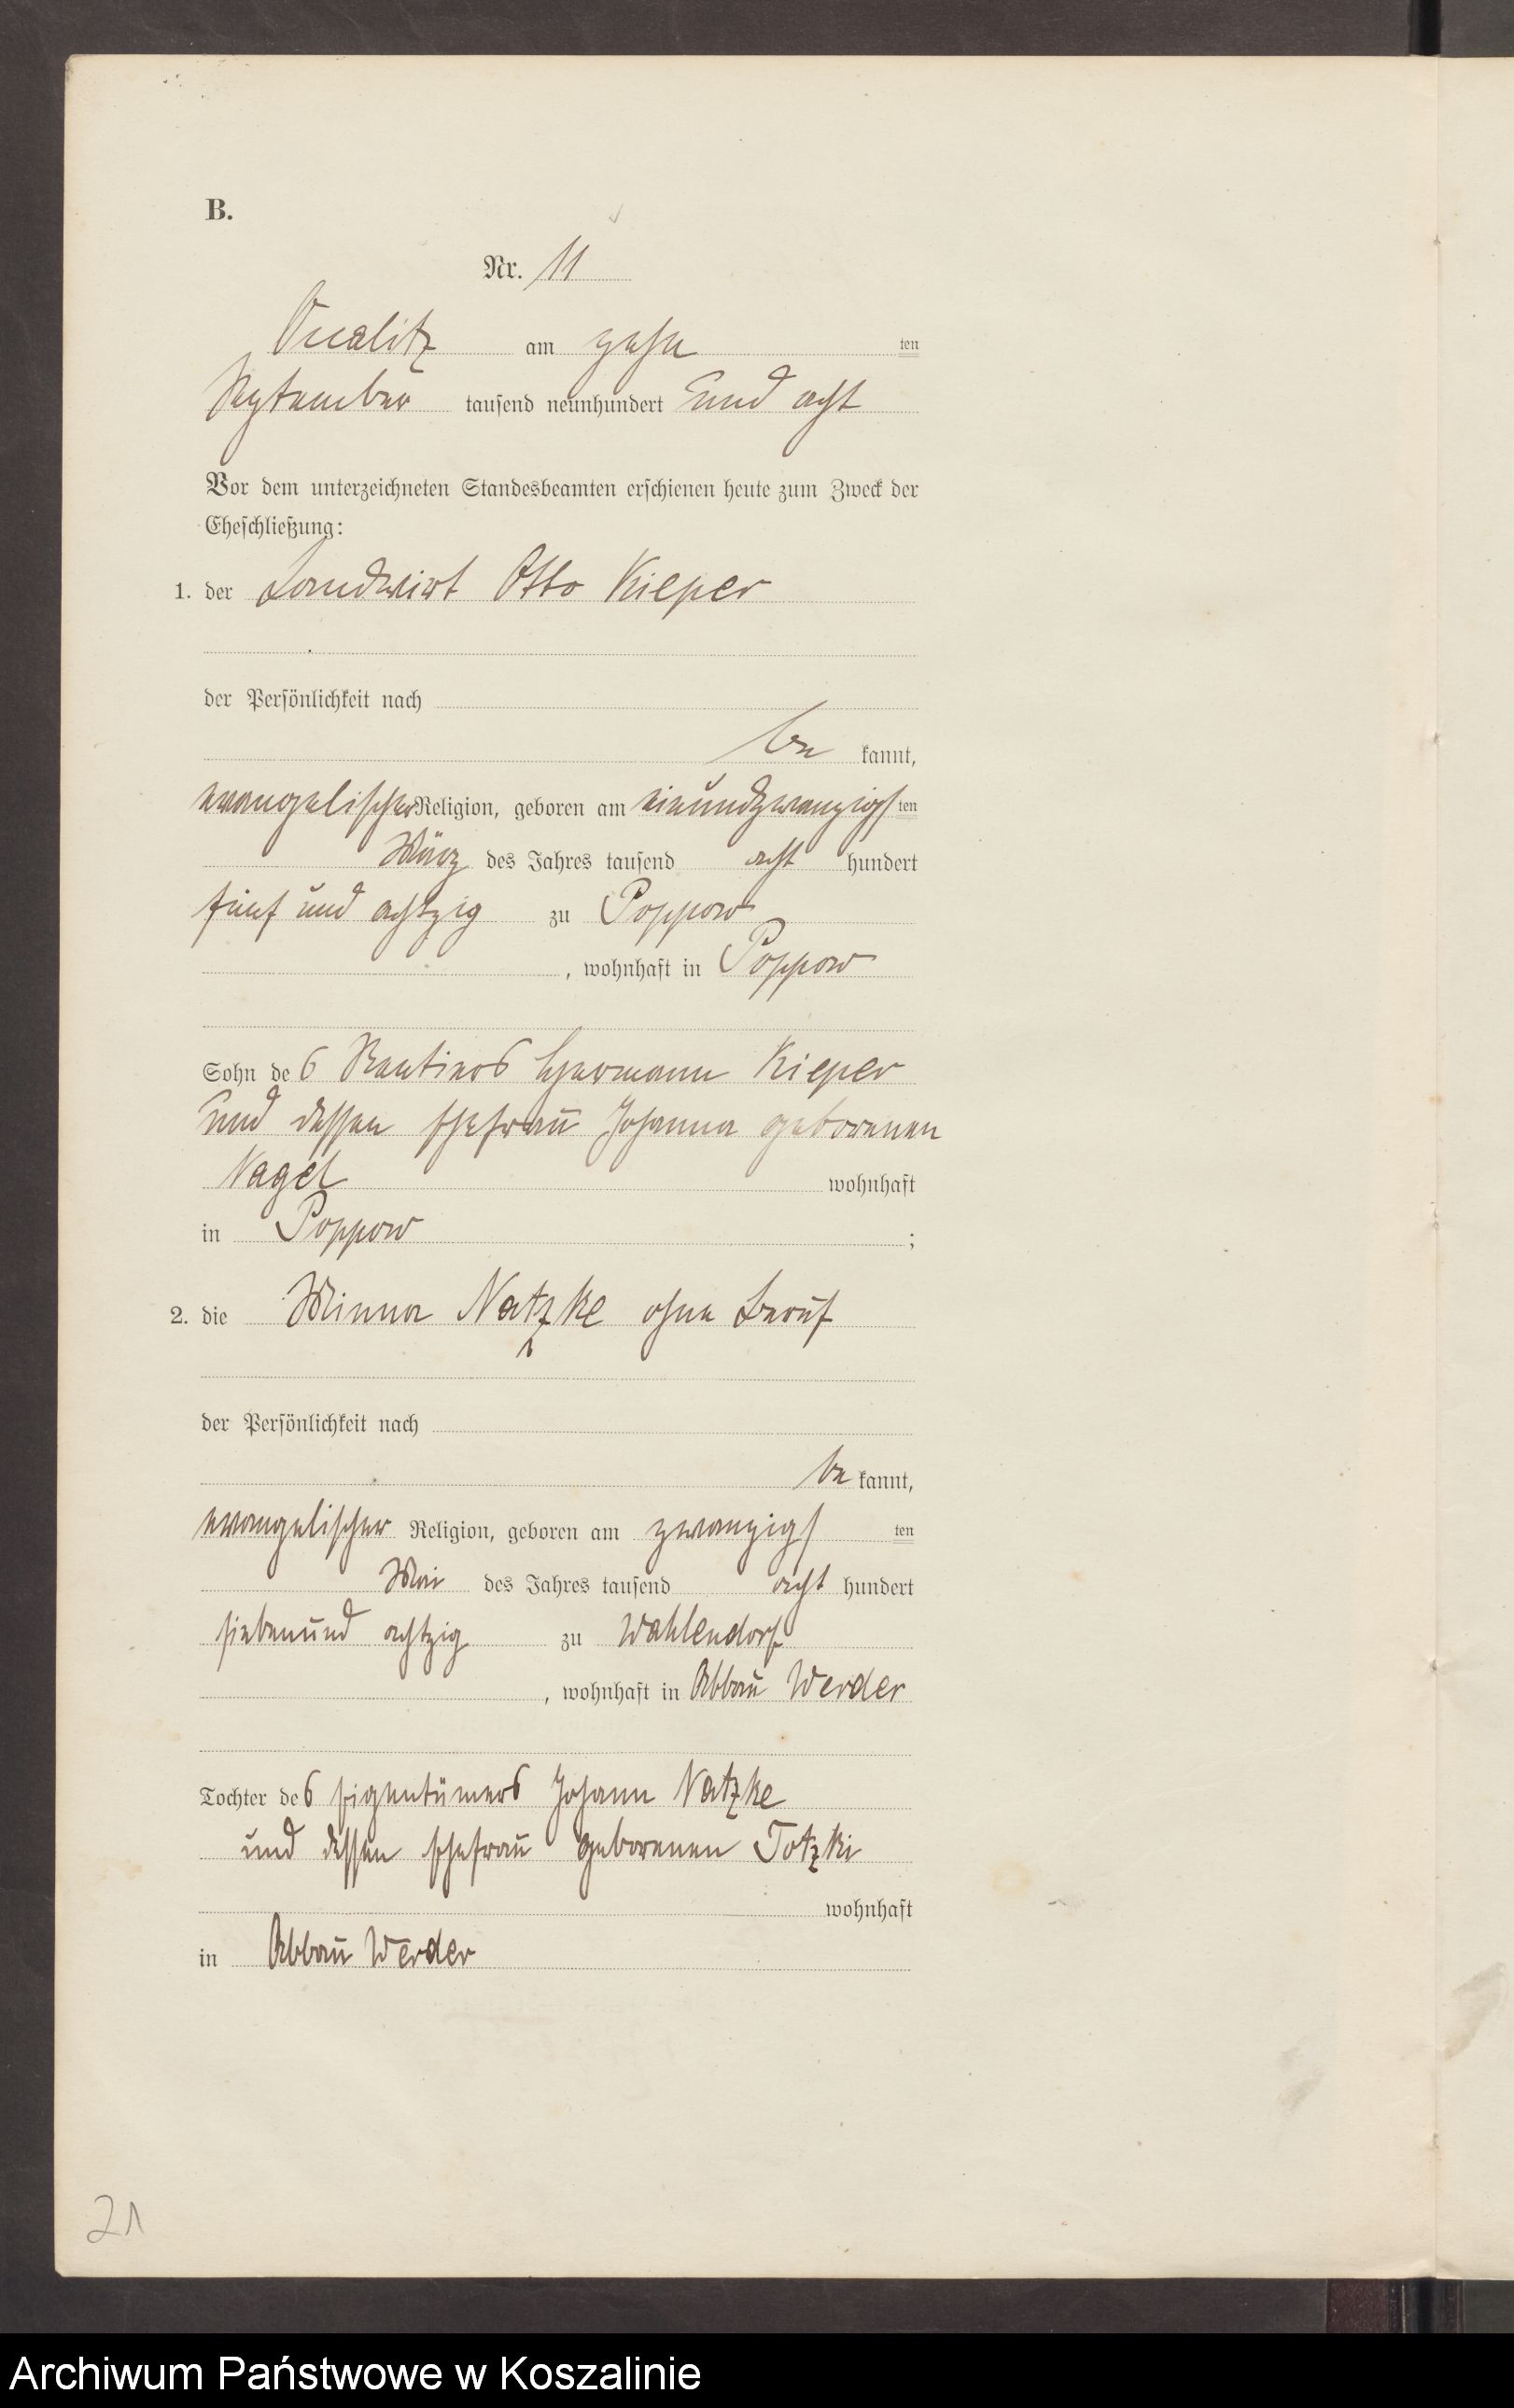 B.
Nr. 11
Occalitz am zehn ten
September tausend neunhundert und acht
Vor dem unterzeichneten Standesbeamten erschienen heute zum Zweck der
Eheschließung:
1. der Landwirt Otto Kieper
der Persönlichkeit nach
be kannt,
evangelischer Religion, geboren am einundzwanzigs ten
März des Jahres tausend acht hundert
fünf und achtzig zu Poppow
, wohnhaft in Poppow
Sohn des Rentiers Hermann Kieper
und dessen Ehefrau Johanna geborenen
Nagel wohnhaft
in Poppow ;
2. die Minna Natzke ohne Beruf
der Persönlichkeit nach
be kannt,
evangelischer Religion, geboren am zwanzigs ten
Mai des Jahres tausend acht hundert
siebenund achtzig zu Wahlendorf
, wohnhaft in Abbau Werder
Tochter des Eigentümers Johann Natzke
und dessen Ehefrau geborenen Totzki
wohnhaft
in Abbau Werder
21
Archiwum Państwowe w Koszalinie